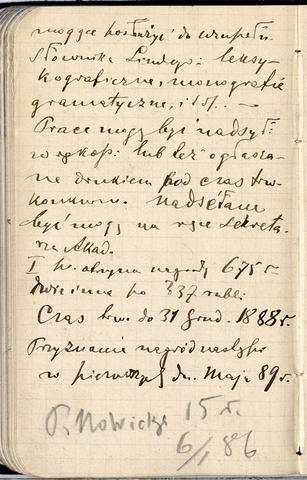 mogące posłużyć do uzupełn.
słownika Lindego: leksy-
kograficzne, monografie
gramatyczne, i t.d. —
Prace mogą być nadsył:
w rękop: lub też ogłasza-
ne drukiem pod czas trw.
konkursu. Nadsełane
być mogą na ręce Sekreta-
rza Akad.
I sza otrzyma nagrody 675 r.
dwie inne po 337 rubl:
Czas trw. do 31 Grud. 1888 r.
Przyznanie nagród nadzw
w pierwszych dn. Maja 89 r.
P. Nowicki 15 r.
6/1 86